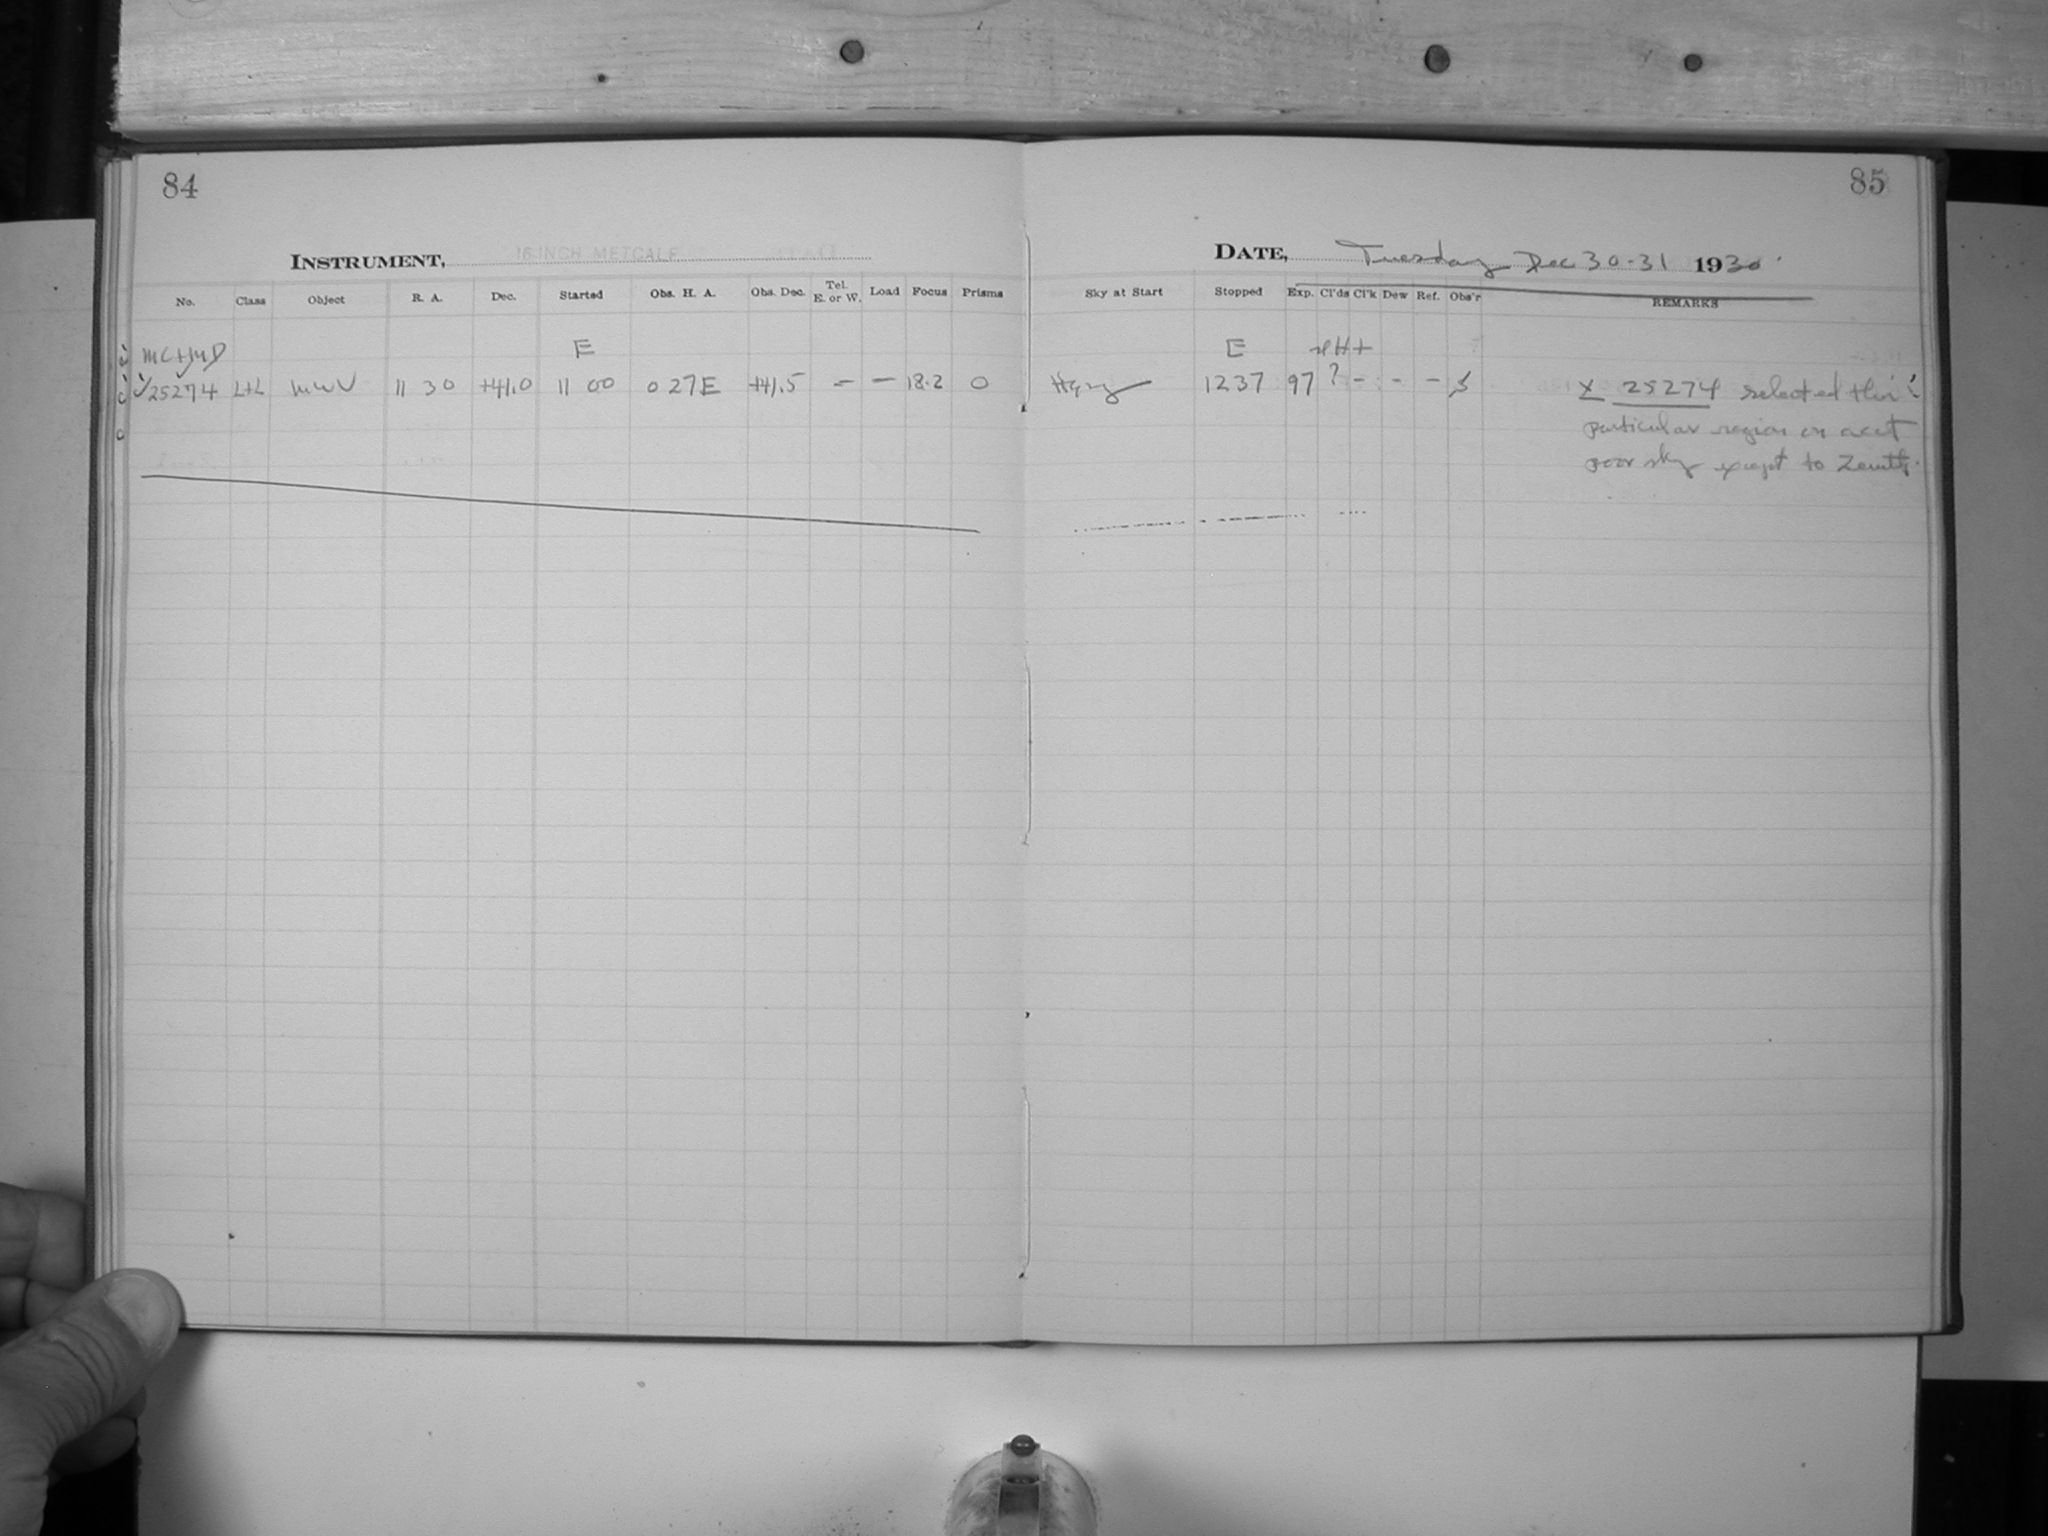 84
85
INSTRUMENT, 16-INCH METCALF
DATE, Tuesday Dec 30-31 1930
No. Class Object R. A. Dec. Started Obs. H. A. Obs. Dec. Tel. E. or W. Load Focus Prisms Sky at Start Stopped Exp. Cl'ds Cl'k Dew Ref. Obs'r REMARKS
E E
25274 L+L MWV 11 30 +41.0 11 00 0 27E +41.5 - - 18.2 0 Hazy 1237 97 ? - - - x 25274 selected this
particular region on acct
poor sky except to Zenith.